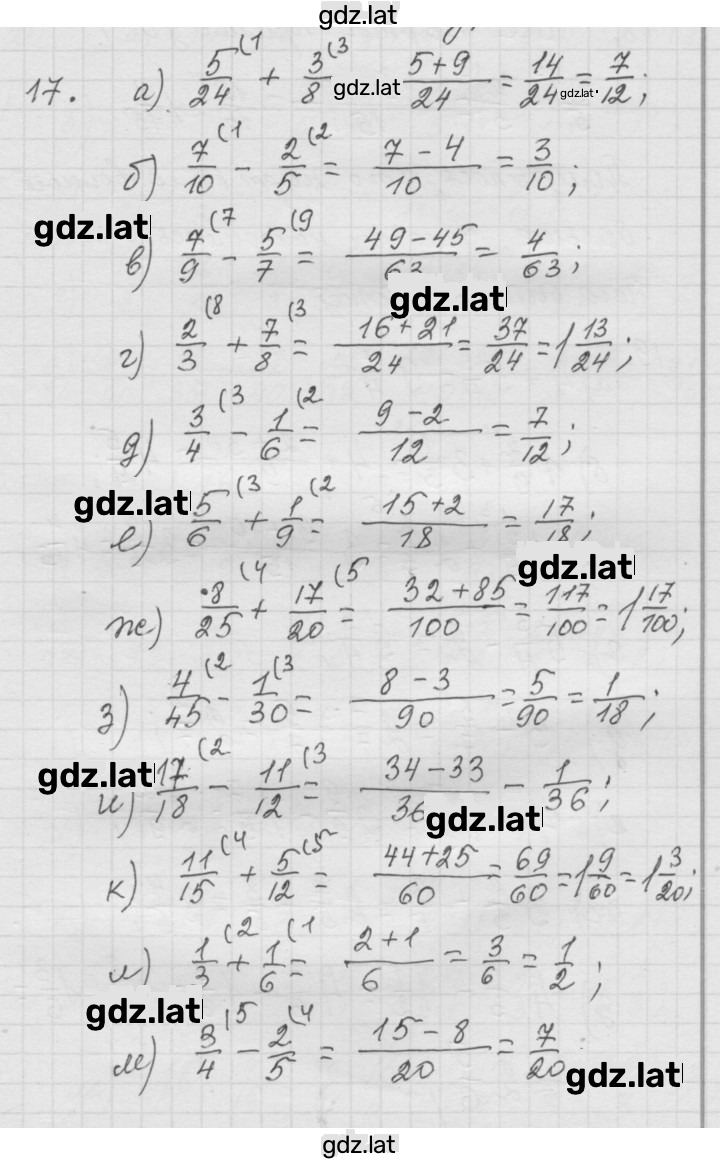 gdz.lat
17. а) 5/24 (1 + 3/8 (3 gdz.lat 5+9/24 = 14/24 = 7/12; gdz.lat
б) 7/10 (1 - 2/5 (2 = 7-4/10 = 3/10;
gdz.lat
в) 7/9 (7 - 5/7 (9 = 49-45/63 = 4/63;
gdz.lat
г) 2/3 (8 + 7/8 (3 = 16+21/24 = 37/24 = 1 13/24;
д) 3/4 (3 - 1/6 (2 = 9-2/12 = 7/12;
gdz.lat
е) 5/6 (3 + 1/9 (2 = 15+2/18 = 17/18;
gdz.lat
ж) 8/25 (4 + 17/20 (5 = 32+85/100 = 117/100 = 1 17/100;
з) 4/45 (2 - 1/30 (3 = 8-3/90 = 5/90 = 1/18;
gdz.lat
и) 17/18 (2 - 11/12 (3 = 34-33/36 - 1/36;
gdz.lat
к) 11/15 (4 + 5/12 (5 = 44+25/60 = 69/60 = 1 9/60 = 1 3/20;
л) 1/3 (2 + 1/6 (1 = 2+1/6 = 3/6 = 1/2;
gdz.lat
м) 3/4 (5 - 2/5 (4 = 15-8/20 = 7/20
gdz.lat
gdz.lat